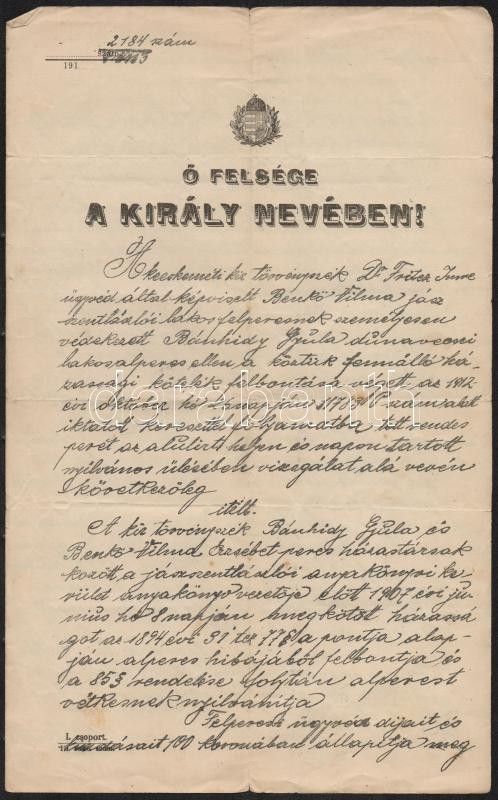 2184 szám
191
Ő FELSÉGE
A KIRÁLY NEVÉBEN!
A kecskeméti kir törvényszék Dr Fritz Imre
ügyvéd által képviselt Benkő Vilma jász
szentlászlói lakos felperesnek személyesen
védekezett Bánhidy Gyula dunavecsei
lakos alperes ellen a köztük fennálló há-
zassági kötelék felbontása végett az 1912
évi október hó napján szám alatt
iktatott keresettel folyamatba tett rendes
perét az alulirt helyen és napon tartott
nyilvános ülésében vizsgálat alá vevén
következőleg
itélt.
A kir törvényszék Bánhidy Gyula és
Benkő Vilma Erzsébet peres házastársak
között a jászszentlászlói anyakönyvi ke-
rület anyakönyvvezetője előtt 1907 évi ju-
nius hó 8 napján megkötött házassá
got az 1894 évi 31 tcz 77§ a pontja alap-
ján alperes hibájából felbontja és
a 85§ rendelése folytán alperest
vétkesnek nyilvánítja
Felperesi ügyvéd dijait és
I. csoport.
kiadásait 180 koronában állapítja meg
darabanth